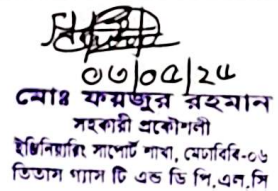 ০৩/০৫/২৫
মোঃ ফয়জুর রহমান
সহকারী প্রকৌশলী
ইঞ্জিনিয়ারিং সাপোর্ট শাখা, মেঢাবিবি-০৬
তিতাস গ্যাস টি এন্ড ডি পি.এল.সি